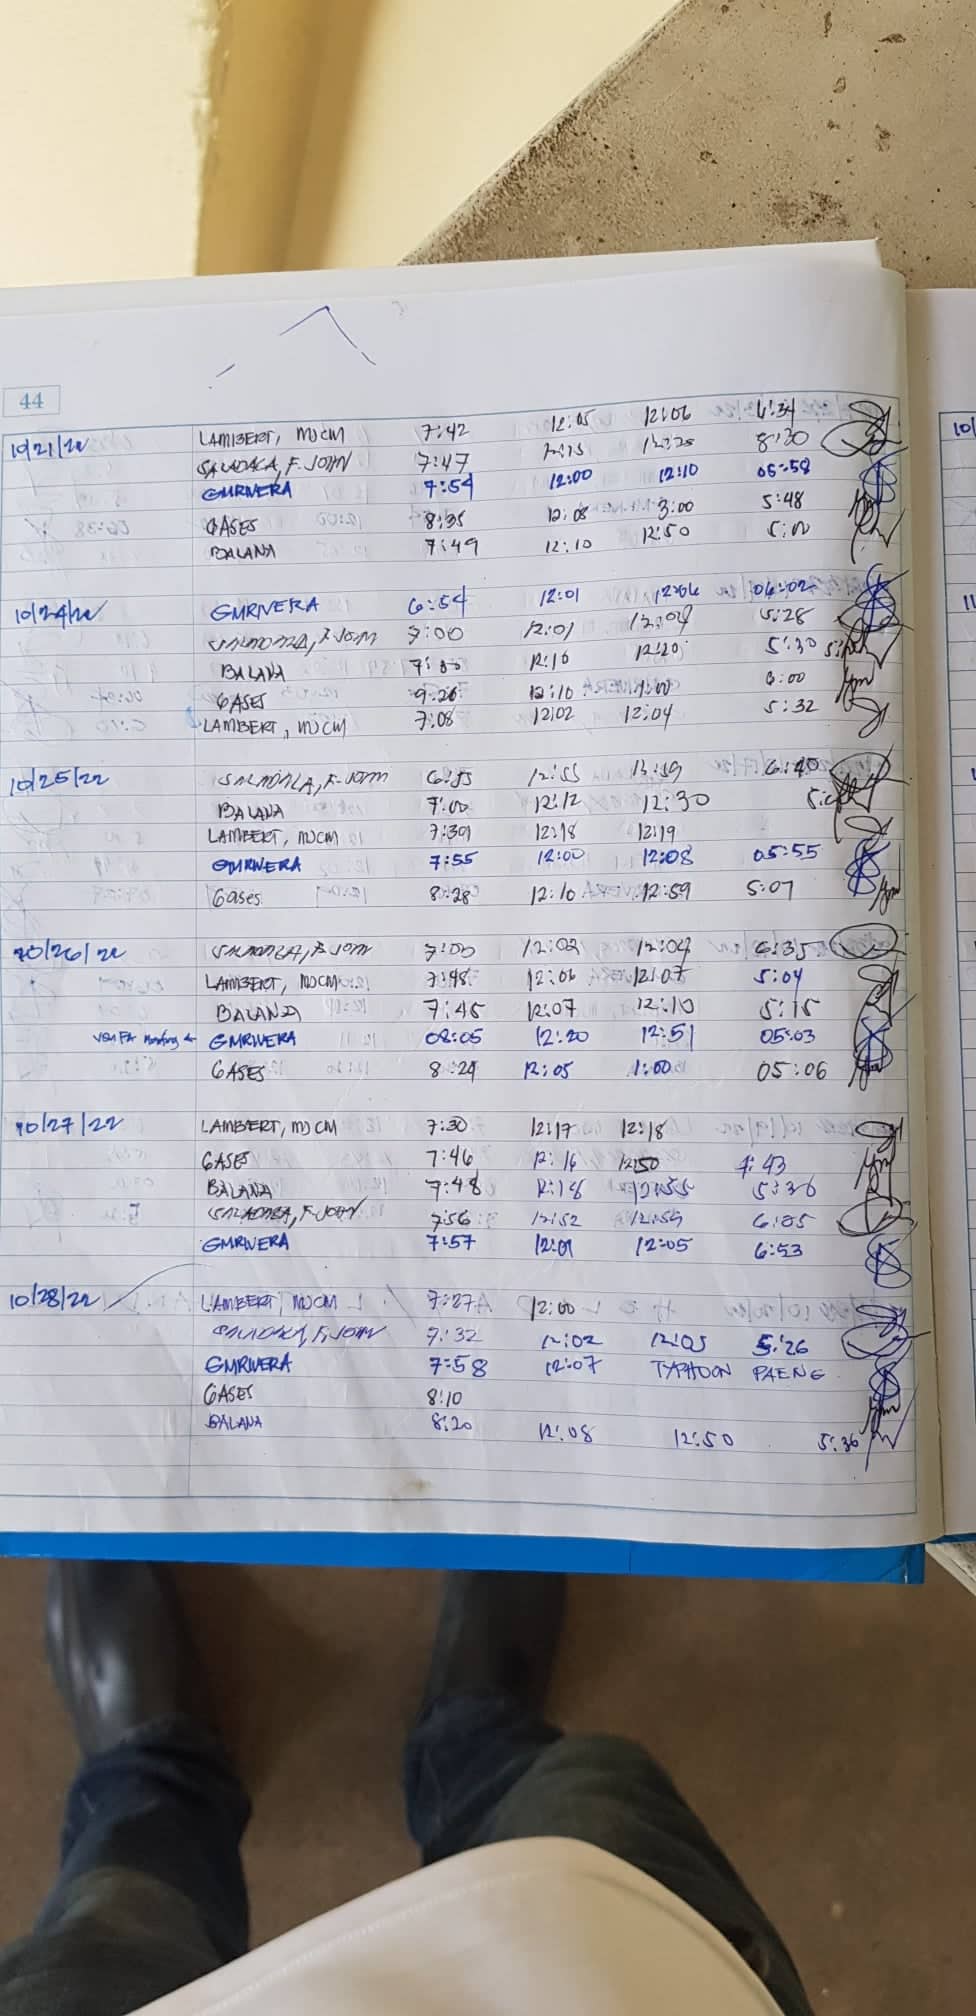 44
10/21/22 LAMBERT, MJCM 7:42 12:05 12:06
F. JOHN 7:47 8:30
GMRIVERA 7:54 12:00 12:10 05:58
GASES 8:35 12:08 3:00 5:48
BALANA 7:49 12:10 12:50 5:00
10/24/22 GMRIVERA 6:54 12:01 12:06 06:02
7:00 12:01 12:04 5:28
BALANA 12:10 12:20 5:30
GASES 9:26 12:10 1:00 6:00
LAMBERT, MJCM 7:08 12:02 12:04 5:32
10/25/22 F. JOHN 6:55 12:55 6:40
BALANA 7:00 12:12 12:30
LAMBERT, MJCM 7:30 12:18 12:19
GMRIVERA 7:55 12:00 12:08 05:55
Gases 8:28 12:10 12:59 5:07
10/26/22 7:00 12:02 12:04 6:35
LAMBERT, MJCM 7:48 12:06 12:07 5:04
BALANA 7:45 12:07 12:10 5:15
GMRIVERA 08:05 12:20 12:51 05:03
GASES 8:29 12:05 1:00 05:06
10/27/22 LAMBERT, MJCM 7:30 12:17 12:18
GASES 7:46 12:16 12:50 4:43
BALANA 7:48 12:18 12:55 5:36
F. JOHN 7:56 12:52 12:59 6:05
GMRIVERA 7:57 12:01 12:05 6:53
10/28/22 LAMBERT, MJCM 7:27 12:00
F. JOHN 7:32 12:02 12:05 5:26
GMRIVERA 7:58 12:07 TYPHOON PAENG
GASES 8:10
BALANA 8:20 12:08 12:50 5:36